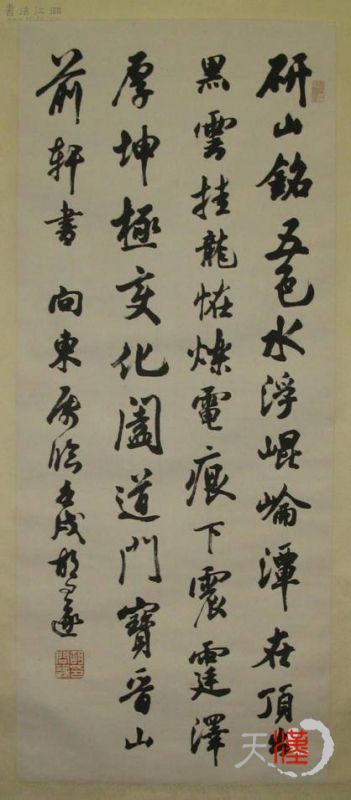 書法江湖
研山銘五色水浮崐崘潭在頂出
黑雲挂龍怪爍電痕下震霆澤
厚坤極变化闔道門寶晉山
前軒書 向東屬臨壬戌胡问遂